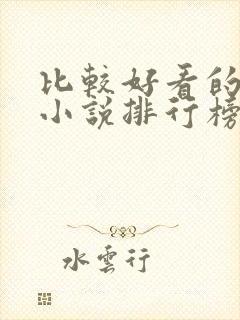 比較好看的
小說排行榜
水雲行